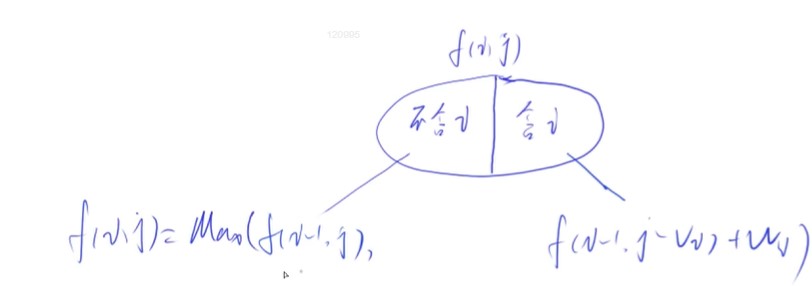 120995
f(i,j)
不含i 含i
f(i,j)= Max(f(i-1,j), f(i-1,j-vi)+wi)